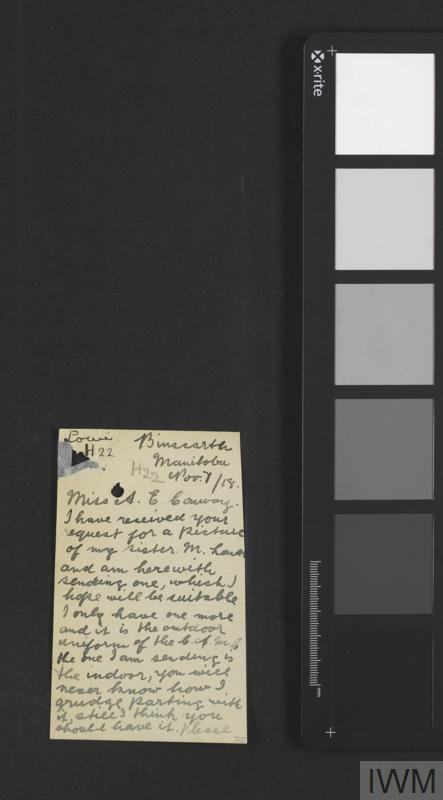 Lowe
H 22
Binscarth
Manitoba
H22
Nov. 7/18.
Miss A. E. Conway.
I have received your
request for a picture
of my sister M. Lowe
and am herewith
sending one, which I
hope will be suitable
I only have one more
and it is the outdoor
uniform of the C.A.M.C
the one I am sending is
the indoor, you will
never know how I
grudge parting with
it, still I think you
should have it. Please
x-rite
mm
IWM